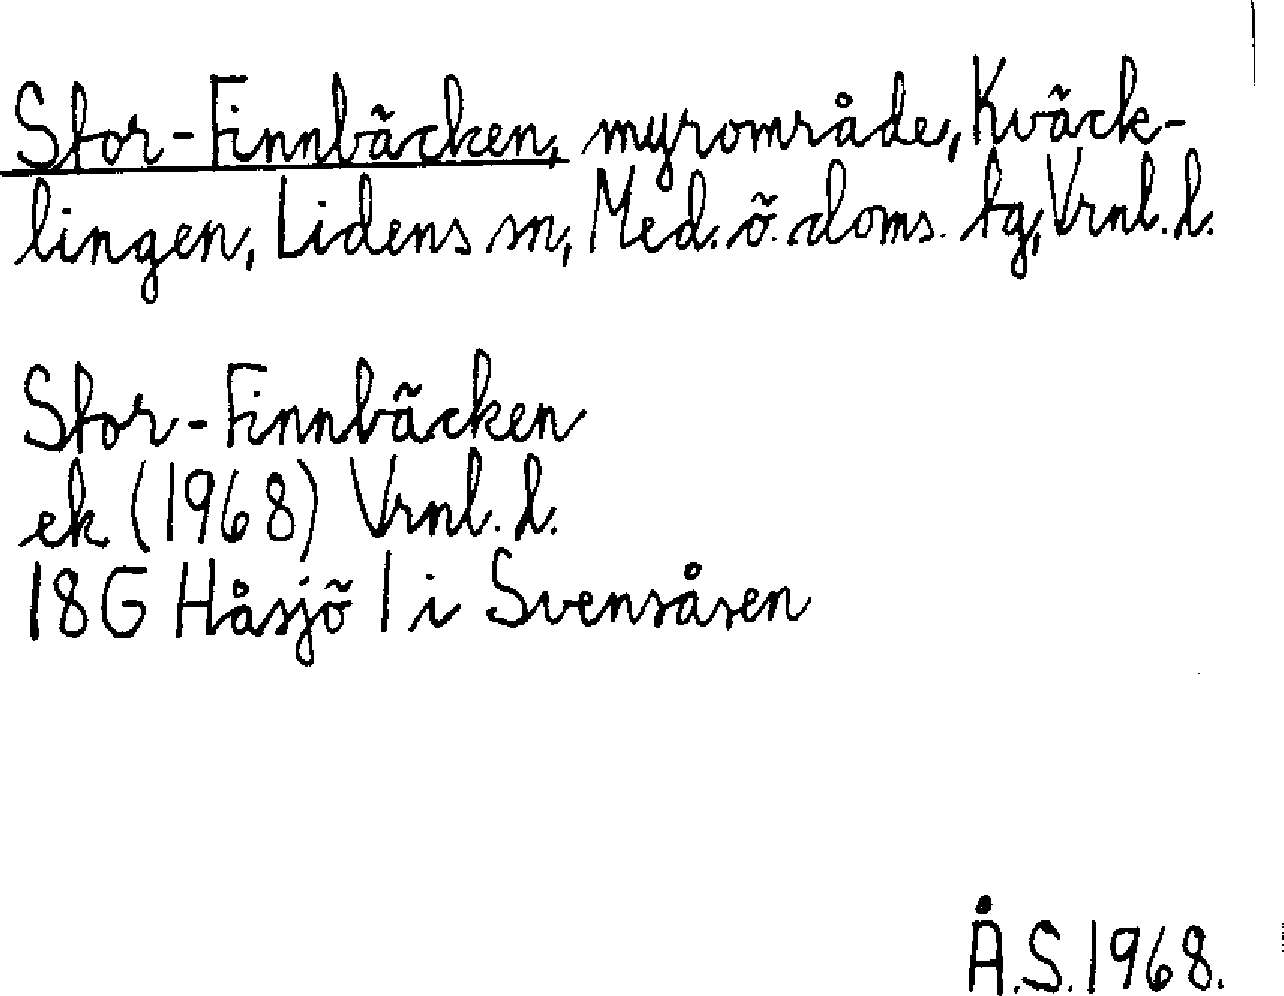 Stor-Finnbäcken, myrområde, Kväck-
lingen, Lidens sn, Med. ö. doms. tg, Vrnl. l.
Stor-Finnbäcken
ek (1968) Vrnl. l.
18G Håsjö 1 i Svensåsen
Å.S. 1968.